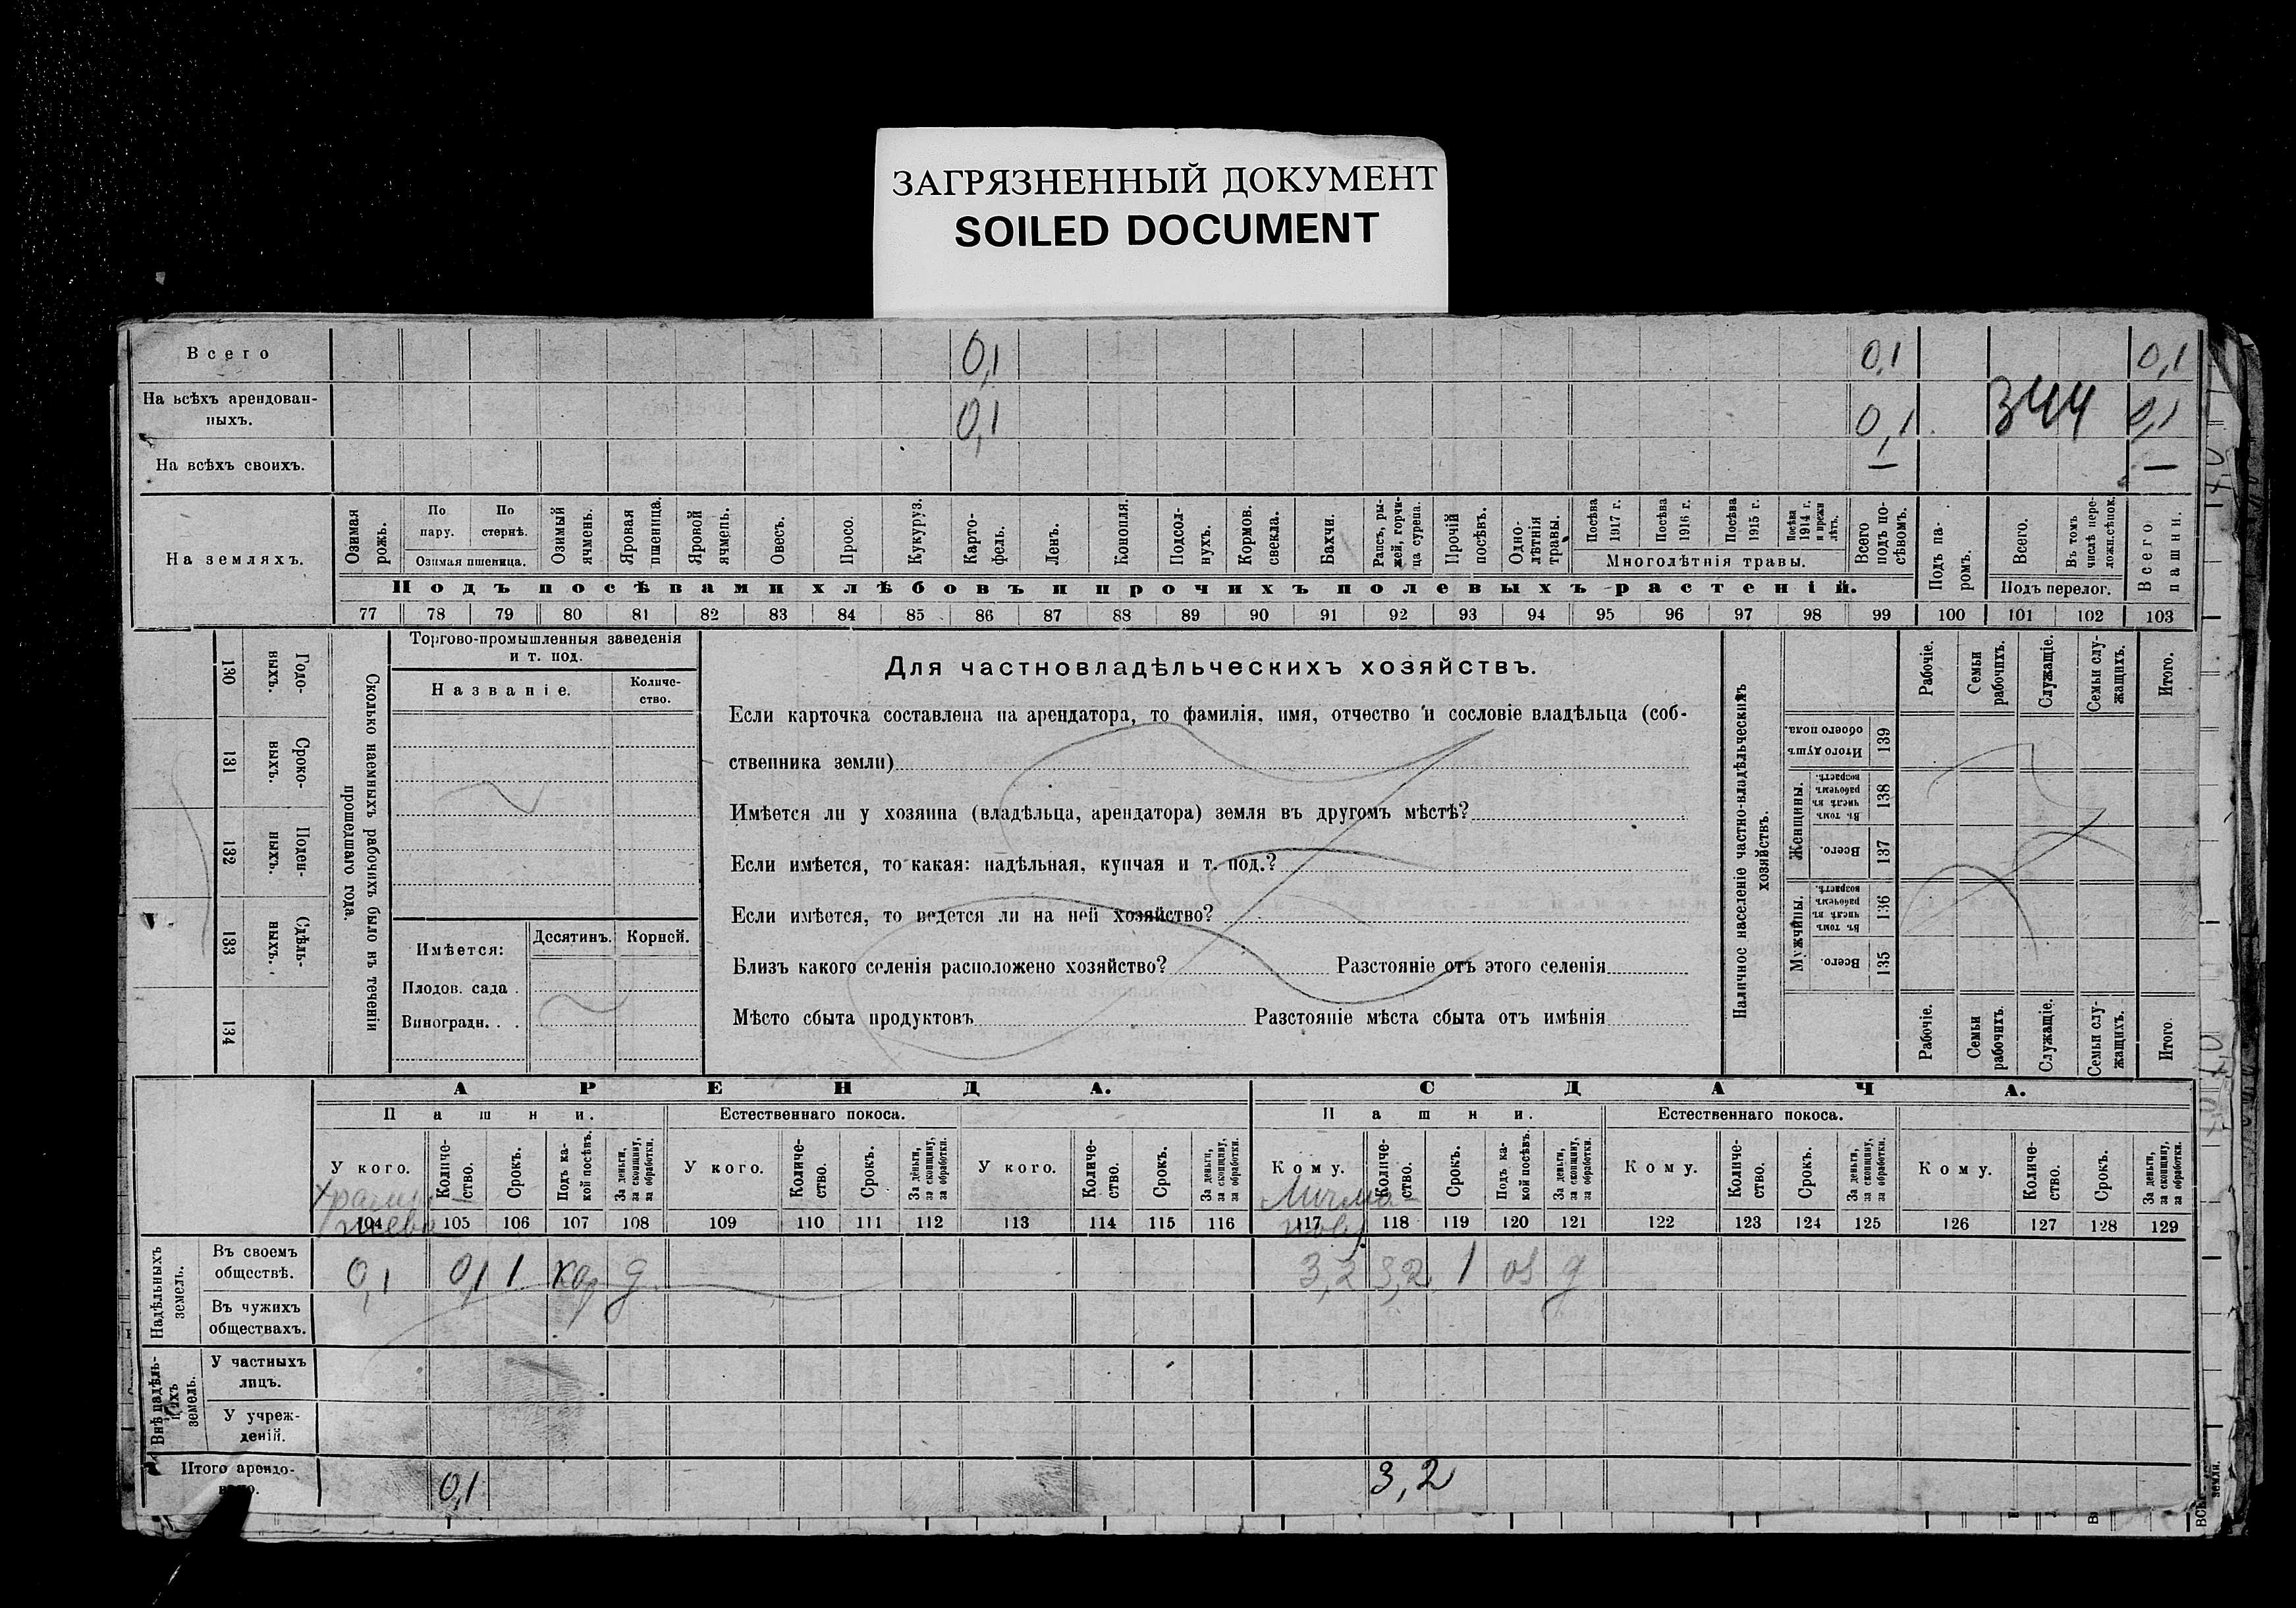 ЗАГРЯЗНЕННЫЙ ДОКУМЕНТ
SOILED DOCUMENT
Всего 0,1 0,1 0,1
На всѣхъ арендован-
ныхъ. 0,1 0,1 344 0,1
На всѣхъ своихъ. — —
На земляхъ.
Озимая рожь.
По пару.
По стернѣ.
Озимая пшеница.
Озимый ячмень.
Яровая пшеница.
Яровой ячмень.
Овесъ.
Просо.
Кукуруз.
Карто-
фель.
Ленъ.
Конопля.
Подсол-
нухъ.
Кормов.
свекла.
Бахчи.
Рапсъ, ры-
жей, горчи-
ца сурепа.
Прочій
посѣвъ.
Одно-
лѣтнія
травы.
Посѣва
1917 г.
Посѣва
1916 г.
Посѣва
1915 г.
Посѣва
1914 г.
и прежн
лѣтъ.
Многолѣтнія травы.
Всего
подъ по-
сѣвомъ.
Подъ па-
ромъ.
Всего.
Въ томъ
числѣ пере-
ложн.сѣнок.
Подъ перелог.
Всего
пашни.
Подъ посѣвами хлѣбовъ и прочихъ полевыхъ растеній.
77 78 79 80 81 82 83 84 85 86 87 88 89 90 91 92 93 94 95 96 97 98 99 100 101 102 103
130 Годо-
выхъ.
131 Сроко-
выхъ.
132 Поден-
ныхъ.
133 Сдѣль-
ныхъ.
134
Сколько наемныхъ рабочихъ было въ теченіи
прошедшаго года.
Торгово-промышленныя заведенія
и т. под.
Названіе.
Количе-
ство.
Имѣется:
Десятинъ.
Корней.
Плодов. сада .
Виноградн. . .
Для частновладѣльческихъ хозяйствъ.
Если карточка составлена на арендатора, то фамилія, имя, отчество и сословіе владѣльца (соб-
ственника земли)
Имѣется ли у хозяина (владѣльца, арендатора) земля въ другомъ мѣстѣ?
Если имѣется, то какая: надѣльная, купчая и т. под.?
Если имѣется, то ведется ли на ней хозяйство?
Близъ какого селенія расположено хозяйство? Разстояніе отъ этого селенія
Мѣсто сбыта продуктовъ Разстояніе мѣста сбыта отъ имѣнія
Наличное населеніе частно-владѣльческихъ
хозяйствъ.
Рабочіе.
Семьи
рабочихъ.
Служащіе.
Семьи слу-
жащихъ.
Итого.
Итого душъ
обоего пола.
139
Женщины.
Въ томъ
числѣ въ
рабочемъ
возрастѣ.
138
Всего.
137
Мужчины.
Въ томъ
числѣ въ
рабочемъ
возрастѣ.
136
Всего.
135
Рабочіе.
Семьи
рабочихъ.
Служащіе.
Семьи слу-
жащихъ.
Итого
АРЕНДА. СДАЧА.
Пашни. Естественнаго покоса. Пашни. Естественнаго покоса.
У кого.
Количе-
ство.
Срокъ.
Подъ ка-
кой посѣвъ.
За деньги,
за скопщину,
за обработки.
У кого.
Количе-
ство.
Срокъ.
За деньги,
за скопщину,
за обработки.
У кого.
Количе-
ство.
Срокъ.
За деньги,
за скопщину,
за обработки.
Кому.
Количе-
ство.
Срокъ.
Подъ ка-
кой посѣвъ.
За деньги,
за скопщину,
за обработки.
Кому.
Количе-
ство.
Срокъ.
За деньги,
за скопщину,
за обработки.
Кому.
Количе-
ство.
Срокъ.
За деньги,
за скопщину,
за обработки.
104 105 106 107 108 109 110 111 112 113 114 115 116 117 118 119 120 121 122 123 124 125 126 127 128 129
Надѣльныхъ
земель.
Въ своемъ
обществѣ. 0,1 0,1 1 кар д 3,2 3,2 1 оз д
Въ чужихъ
обществахъ.
Внѣ надѣль-
ныхъ
земель.
У частныхъ
лицъ.
У учреж-
деній.
Итого арендо-
0,1 3,2
земли.